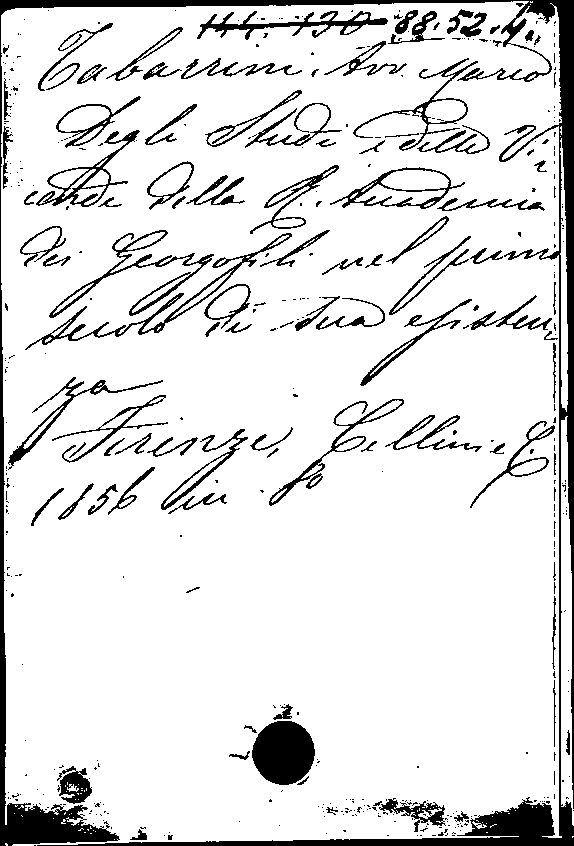 144. 130 88.52.4.
Tabarrini, Avv. Mario
Degli Studi e delle Vi-
cende della R. Accademia
dei Georgofili nel primo
secolo di sua esisten-
za
Firenze, Cellini e C.
1856 in 8º